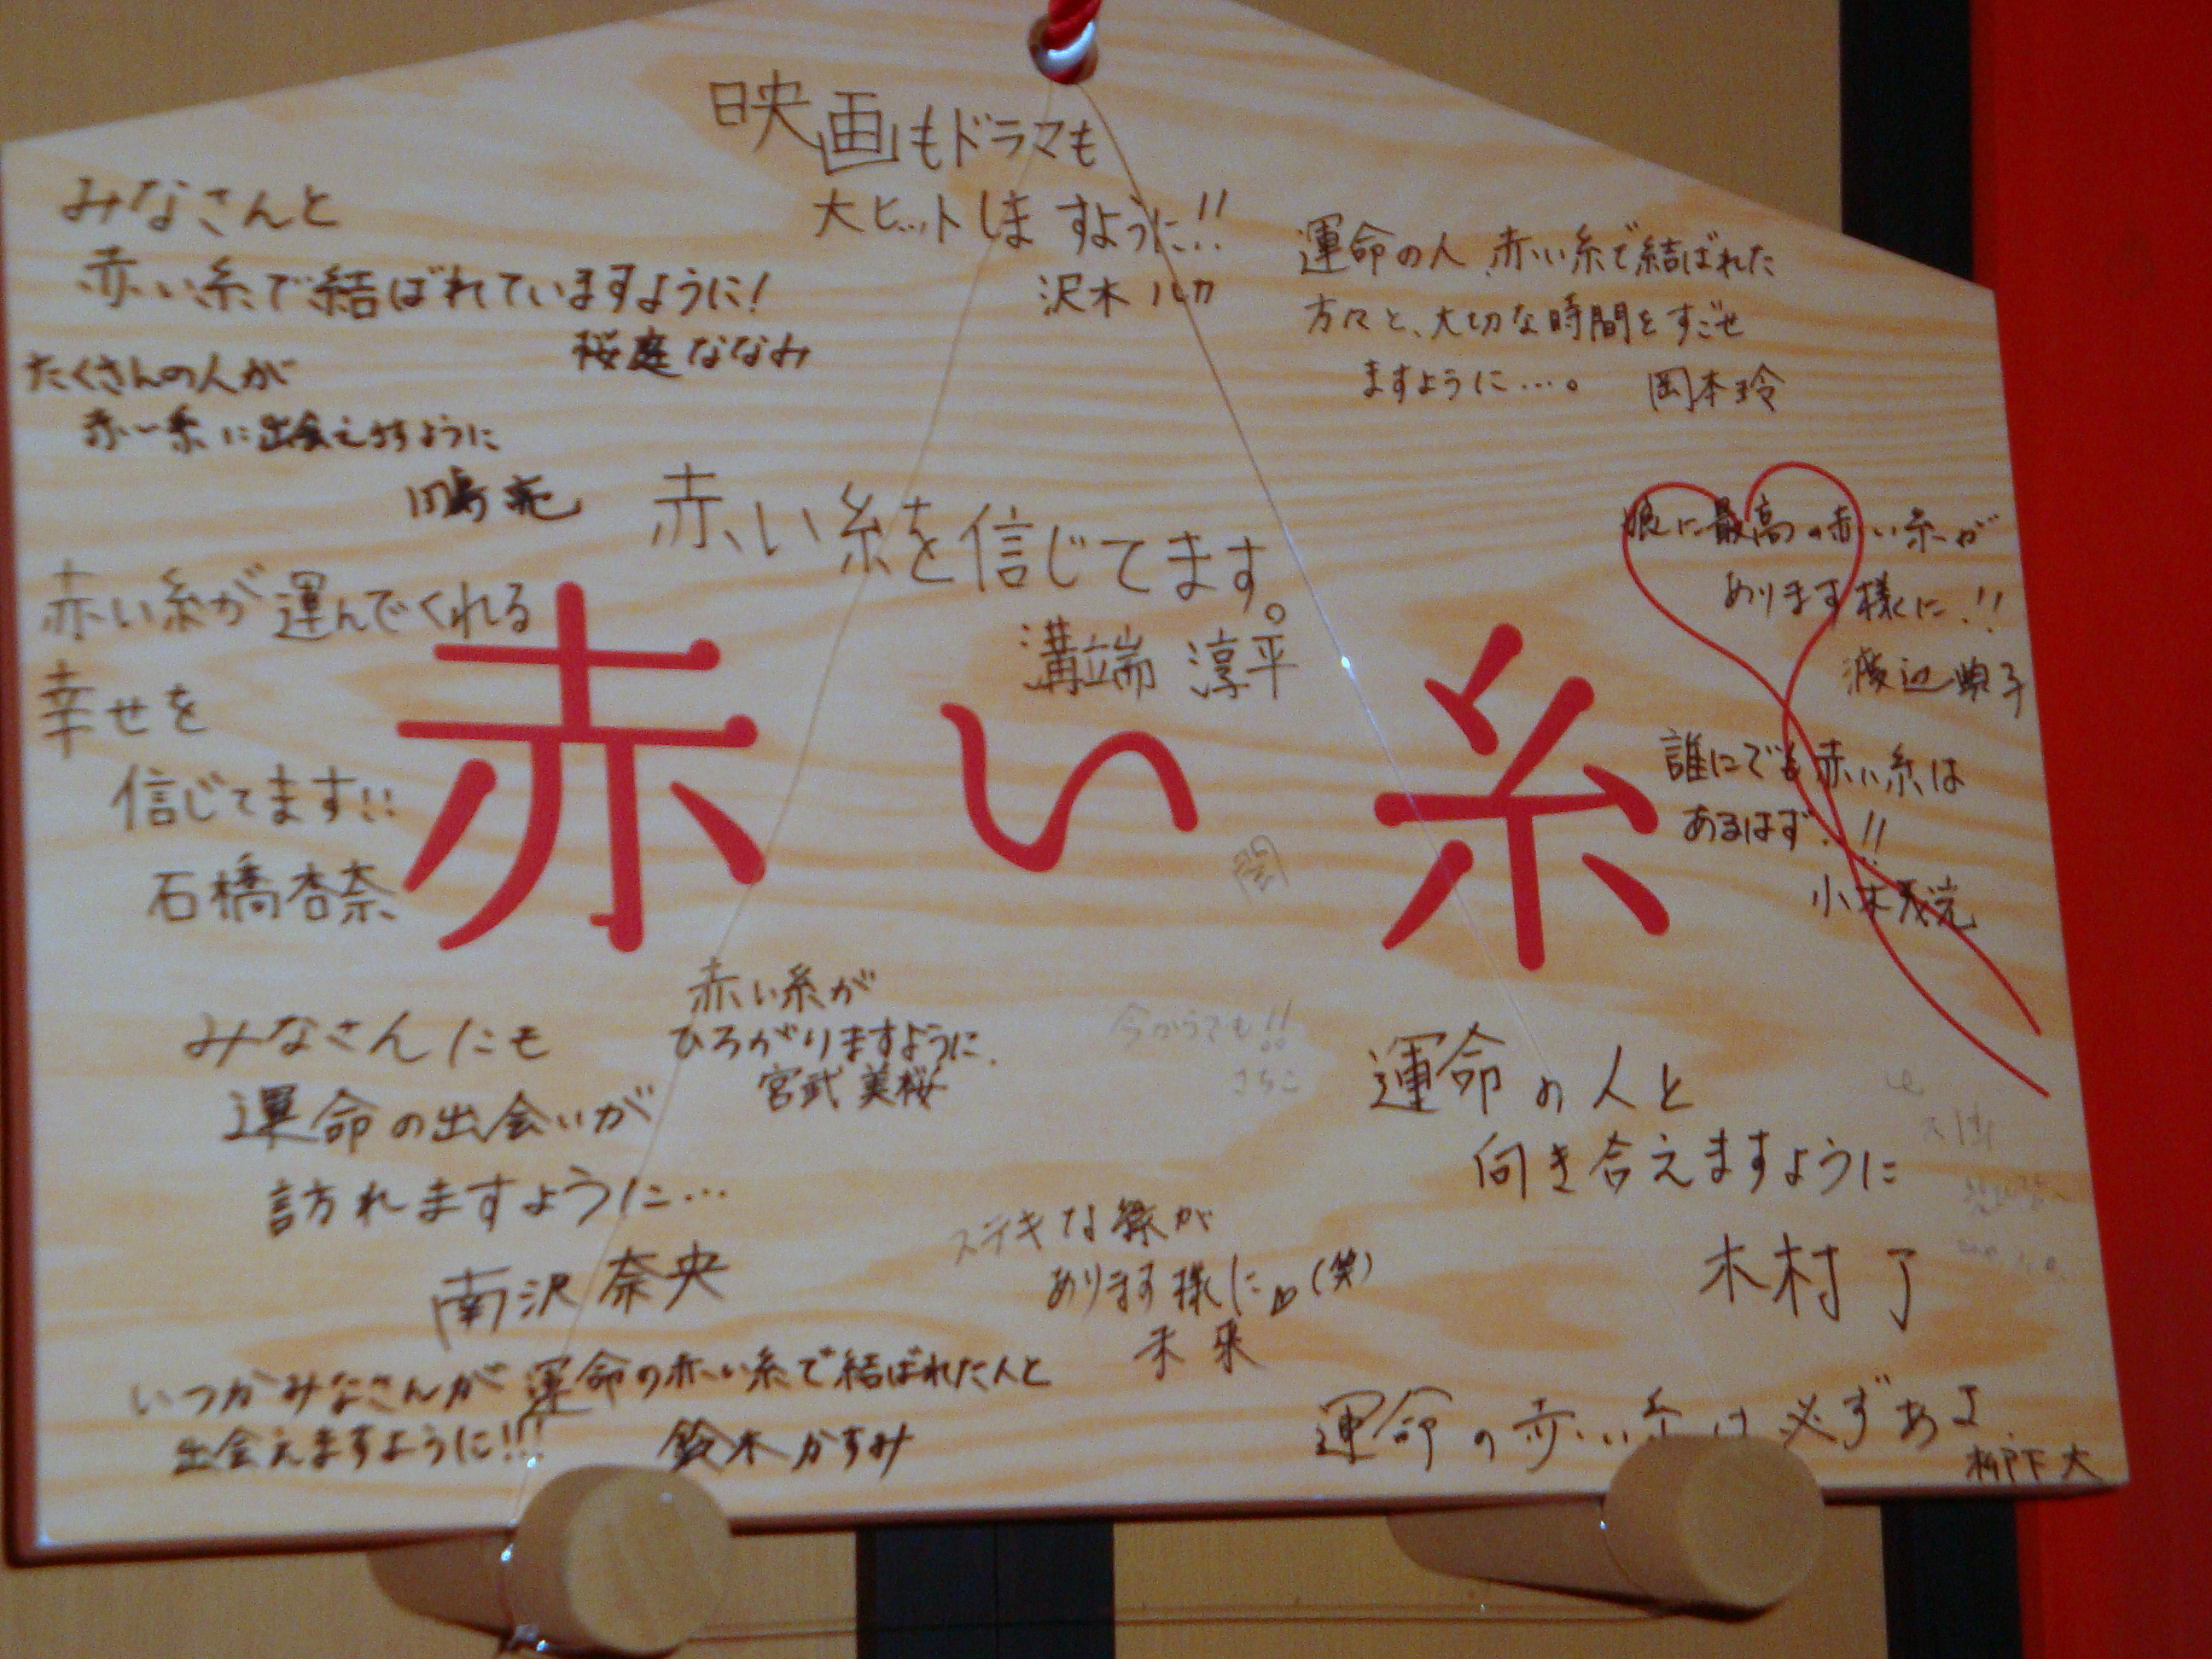 映画もドラマも
大ヒットしますように!!
沢木 ルカ
みなさんと
赤い糸で結ばれていますように!
桜庭ななみ
運命の人、赤い糸で結ばれた
方々と、大切な時間をすごせ
ますように…。 岡本玲
たくさんの人が
赤い糸に出会えますように
赤い糸を信じてます。
溝端 淳平
娘に最高の赤い糸が
あります様に!!
渡辺典子
赤い糸が運んでくれる
幸せを
信じてます!!
石橋杏奈
赤い糸
誰にでも赤い糸は
あるはず!!
赤い糸が
ひろがりますように.
宮武 美桜
みなさんにも
運命の出会いが
訪れますように…
南沢 奈央
運命の人と
向き合えますように
木村 了
ステキな縁が
あります様に (笑)
未来
いつかみなさんが運命の赤い糸で結ばれた人と
出会えますように!!!
鈴木かすみ
運命の赤い糸は必ずあるよ.
柳下 大